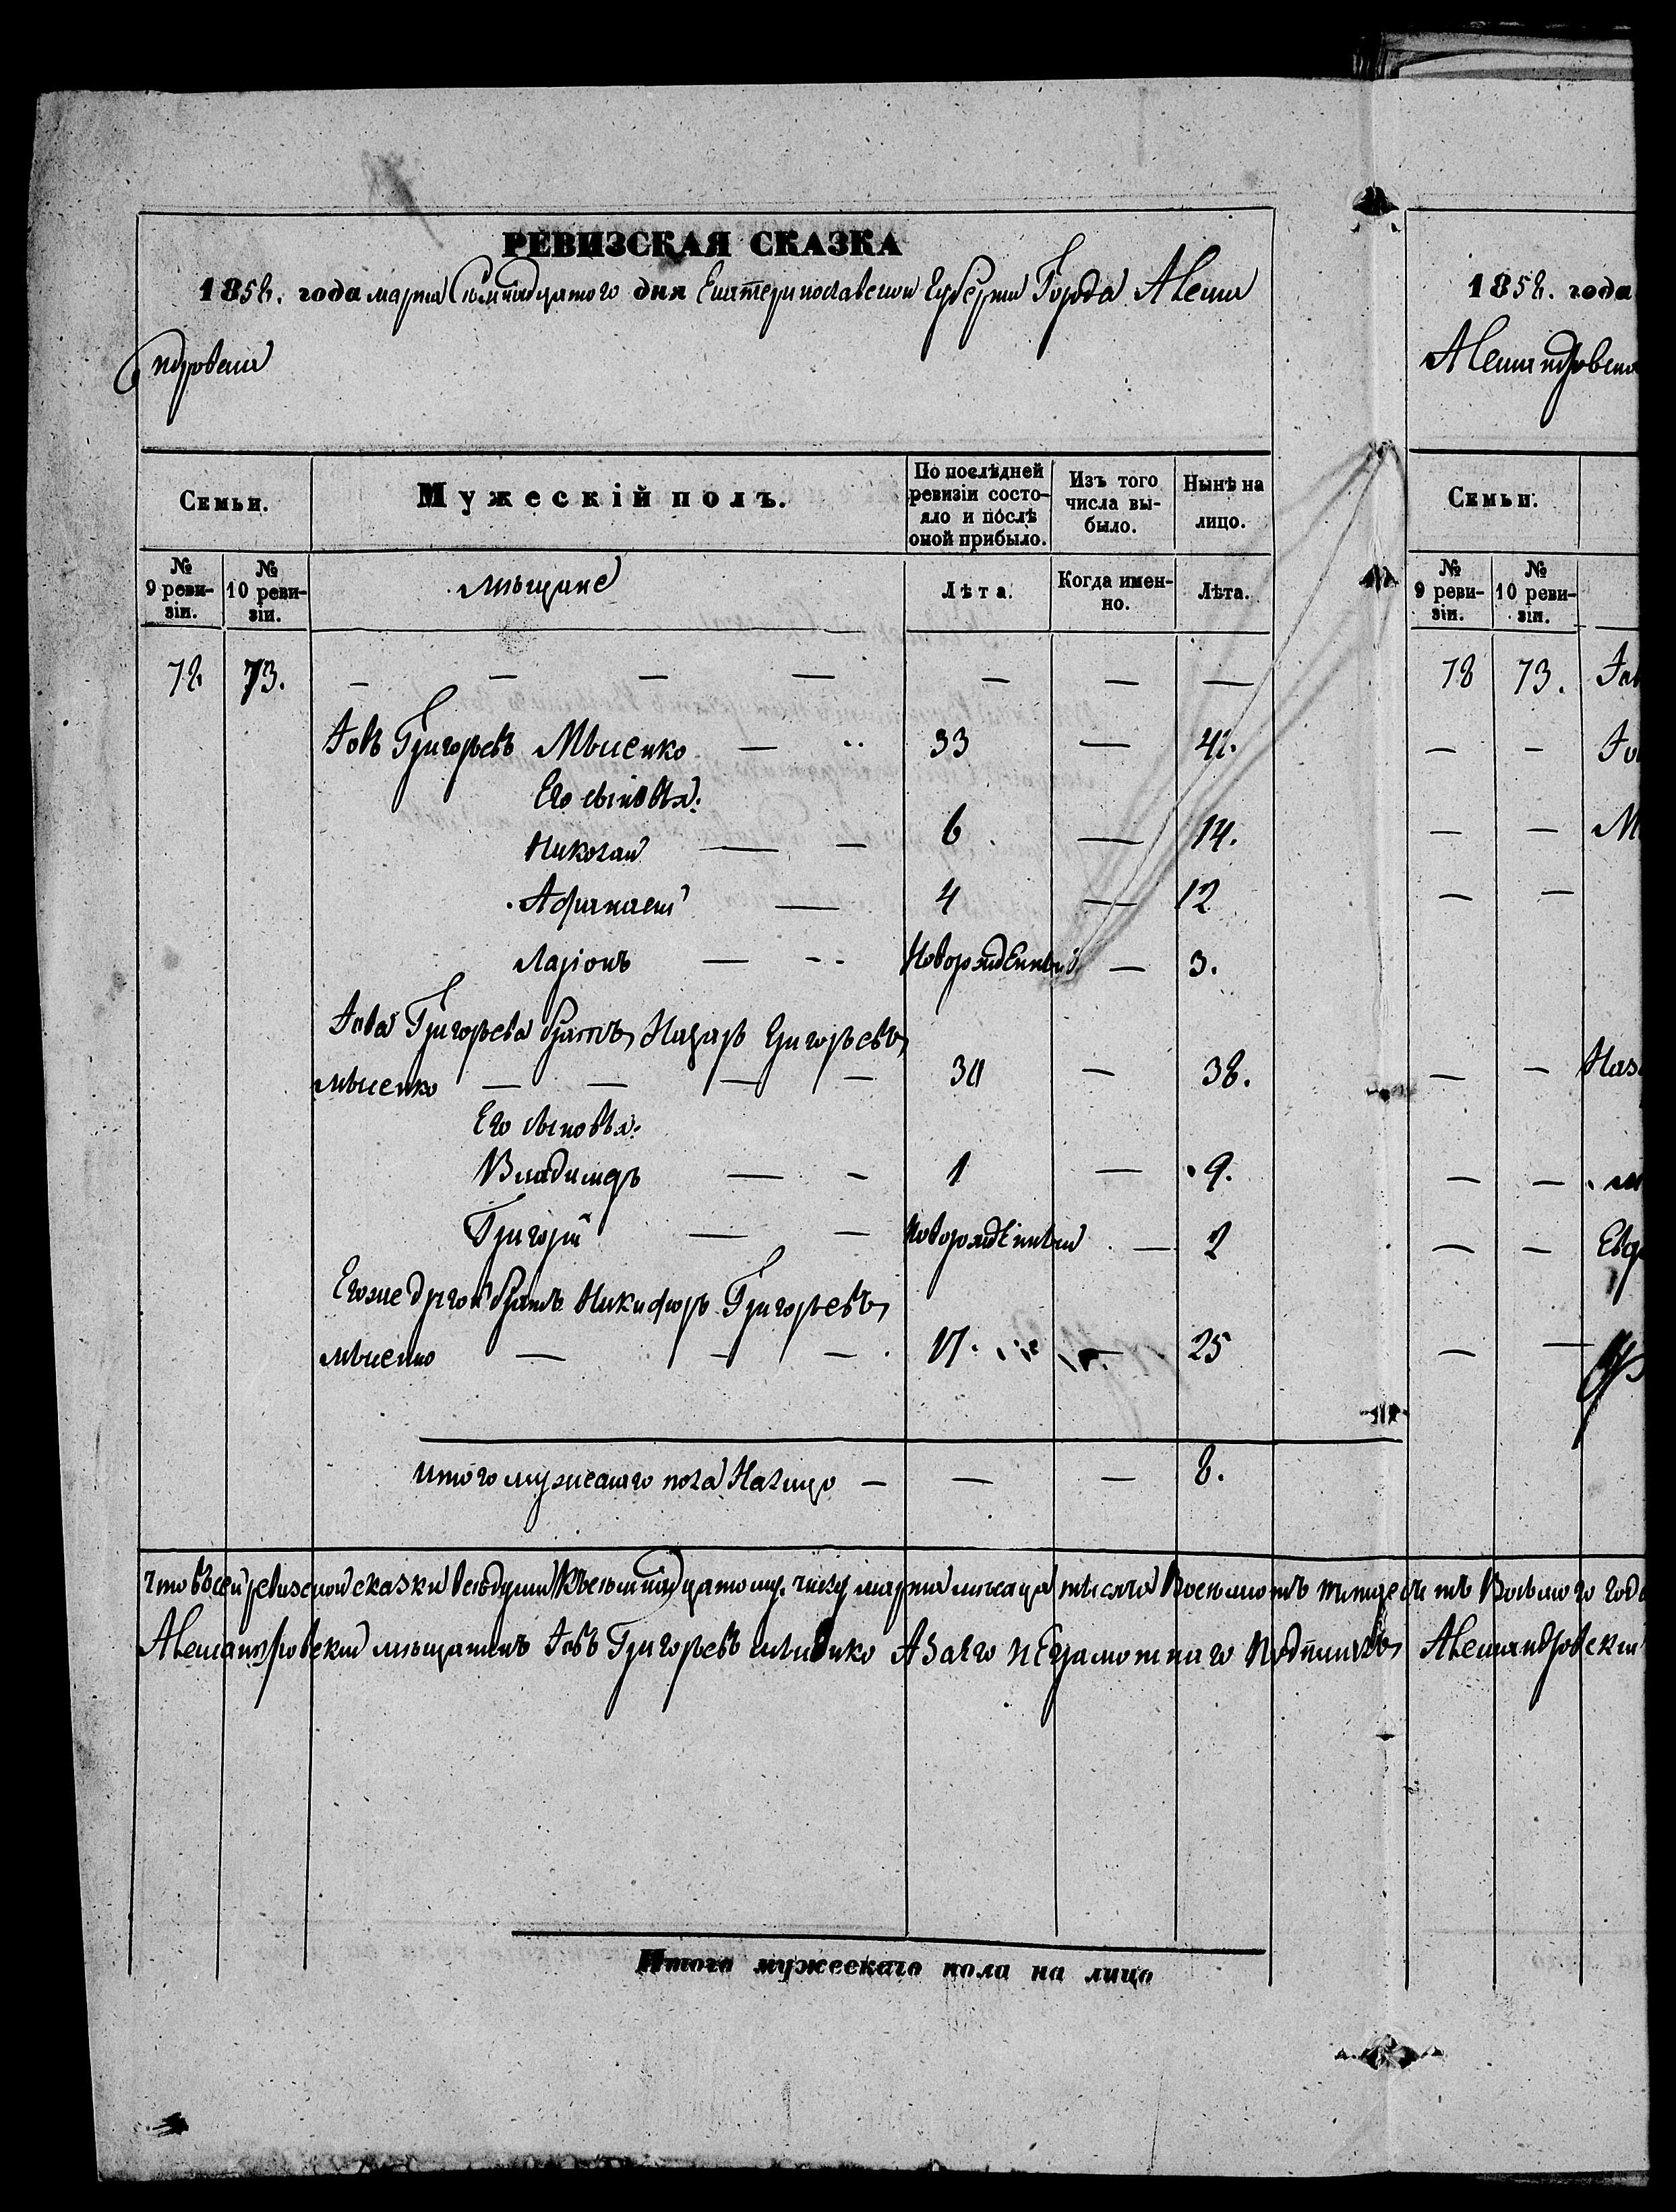 РЕВИЗСКАЯ СКАЗКА
1858. года марта дня Екатеринославской Губерніи Города Алекса
ндровска
Семьи.
Мужескій полъ.
По послѣдней ревизіи состояло и послѣ оной прибыло.
Изъ того числа выбыло.
Нынѣ на лицо.
№ 9 ревизіи.
№ 10 ревизіи.
мѣщане
Лѣта.
Когда именно.
Лѣта.
78 73. — — — — — — —
Іовъ Григорьевъ — 33 — 41.
Его сыновья:
Николай — — 6. — 14.
Афанасій — 4 — 12
Ларіонъ — Новорожденный — 3.
Іова Григорьева братъ Назаръ Григорьевъ
— — — — 30 — 38.
Его сыновья:
Владимиръ — — 1 — 9.
Григорій — — Новорожденный — 2
Егоже другой братъ Никифоръ Григорьевъ
— — — 17. — 25
Итого мужескаго пола Налицо — — — 8.
Что въ сей ревизской сказки числу марта мѣсяца тысяча Восемьсотъ пятьдесятъ Восьмого года
Александровскій мѣщанинъ Іовъ Григорьевъ А За его неграмотнаго Александровскій
Итого мужескаго пола на лицо
1858. года
Александровска
Семьи.
№ 9 ревизіи.
№ 10 ревизіи.
78 73.
— —
— —
— —
— —
— —
— —
— —